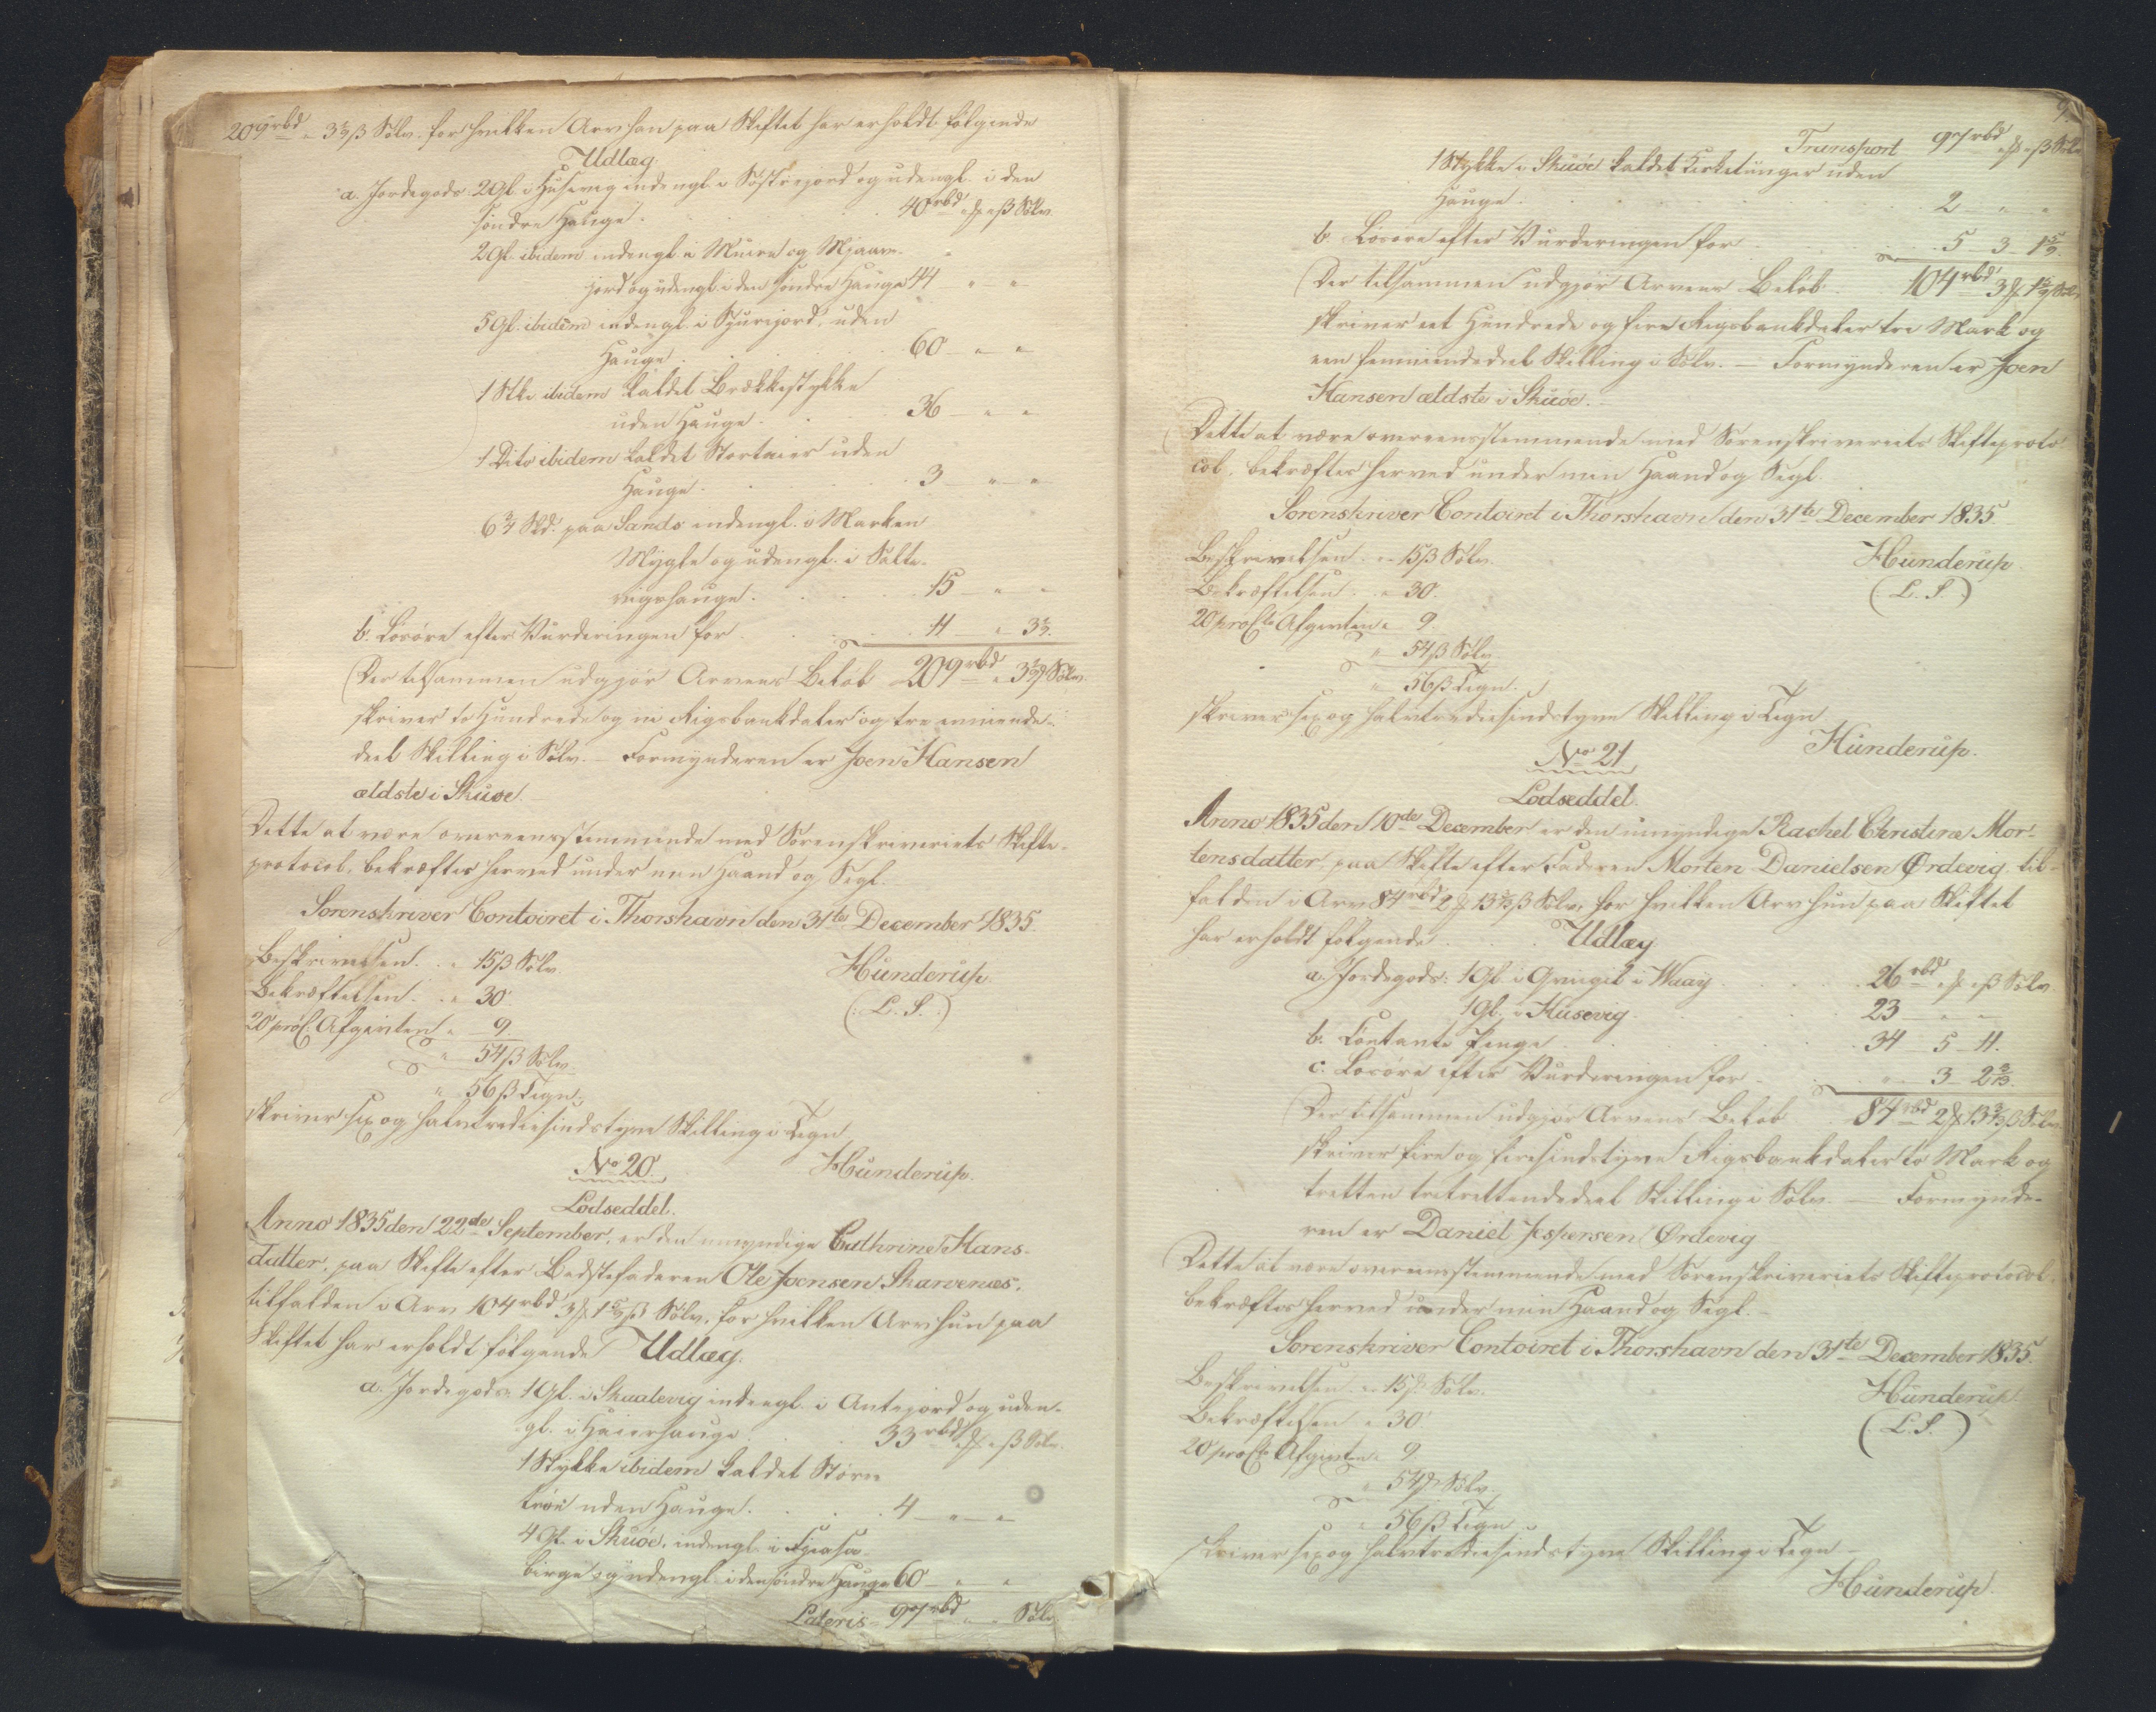 209 rbd " 3 3/9 ß Sølv, for hvilken Arv han paa Skiftet har erholdt følgende
Udlæg.
a. Jordegods: 2 Gl. i Husevig indengl. i Søstrejord og udengl. i den
søndre Hauge . . . 40 rbd " ₰ " ß Sølv.
2 Gl. ibidem indengl. i Muira og Mjaave-
jord og udengl. i den søndre Hauge 44 " "
5 Gl. ibidem indengl. i Spurijord, uden
Hauge . . . 60 " "
1 Stk. ibidem kaldet Brækkestykke
uden Hauge . . 36 " "
1 Dito ibidem kaldet Stortaier uden
Hauge . . . 3 " "
6 3/4 Skd. paa Sands indengl. i Marken
Mygle og udengl. i Salte-
vigshauge . . . 15 " "
b. Løsøre efter Vurderingen for . . . 11 " 3 3/9.
Der tilsammen udgjør Arvens Beløb 209 rbd " 3 3/9 ß Sølv.
skriver to Hundrede og ni Rigsbankdaler og tre niende-
deel Skilling i Sølv. — Formynderen er Joen Hansen
ældste i Skuøe.
Dette at være overeensstemmende med Sorenskriveriets Skifte-
protocol, bekræftes herved under min Haand og Segl.
Sorenskriver Contoiret i Thorshavn den 31te December 1835.
Beskrivelsen . . " 15 ß Sølv. Hunderup
Bekræftelsen . . " 30. (: L. S. :)
20 proC. Afgivten " 9.
" 54 ß Sølv.
" 56 ß Tegn.
skriver sex og halvtrediesindstyve Skilling i Tegn
No 20. Hunderup.
Lodseddel.
Anno 1835 den 22de September, er den umyndige Cathrine Hans-
datter, paa Skifte efter Bedstefaderen Ole Joensen Skarvenæs,
tilfalden i Arv 104 rbd 3 ₰ 1 5/9 ß Sølv, for hvilken Arv hun paa
Skiftet har erholdt følgende Udlæg.
a. Jordegods: 1 Gl. i Skaalevig indengl. i Antejord og uden-
gl. i Haierhauge . . 33 rbd " ₰ " ß Sølv.
1 Stykke ibidem kaldet Større
trøe uden Hauge . . . 4 " "
4 Gl. i Skuøe, indengl. i
birge og udengl. i den søndre Hauge 60 " "
Lateris 97 rbd " " Sølv.
9.
Transport 97 rbd " ₰ " ß Sølv
1 Stykke i Skuøe kaldet Kirketunger uden
Hauge . . . 2 " "
b. Løsøre efter Vurderingen for . . . 5 3 1 5/9.
Der tilsammen udgjør Arvens Beløb 104 rbd 3 ₰ 1 5/9 ß Sølv
skriver eet Hundrede og fire Rigsbankdaler tre Mark og
een femniendedeel Skilling i Sølv. — Formynderen er Joen
Hansen ældste i Skuøe.
Dette at være overeensstemmende med Sorenskriveriets Skifteproto-
col, bekræftes herved under min Haand og Segl.
Sorenskriver Contoiret i Thorshavn den 31te December 1835.
Beskrivelsen . . " 15 ß Sølv. Hunderup.
Bekræftelsen . . " 30. (: L. S. :)
20 proCto Afgivten " 9.
" 54 ß Sølv.
" 56 ß Tegn.
skriver sex og halvtrediesindstyve Skilling i Tegn.
No 21 Hunderup.
Lodseddel.
Anno 1835 den 10de December er den umyndige Rachel Christine Mor-
tensdatter paa Skifte efter Faderen Morten Danielsen Ørdevig til-
falden i Arv 84 rbd 2 ₰ 13 3/13 ß Sølv, for hvilken Arv hun paa Skiftet
har erholdt følgende . . . Udlæg
a. Jordegods: 1 Gl. i Gvingil i Waag . . . 26 rbd " ₰ " ß Sølv
1 Gl. i Husevig . . . 23 " "
b. Contante Penge . . . 34 5 11.
c. Løsøre efter Vurderingen for . . . " 3 2 3/13.
Der tilsammen udgjør Arvens Beløb . . 84 rbd 2 ₰ 13 3/13 ß Sølv
skriver fire og firesindstyve Rigsbankdaler to Mark og
tretten tretrettendedeel Skilling i Sølv. — Formynde-
ren er Daniel Jespersen Ørdevig
Dette at være overeensstemmende med Sorenskriveriets Skifteprotocol
bekræftes herved under min Haand og Segl. —
Sorenskriver Contoiret i Thorshavn den 31te December 1835.
Beskrivelsen . . " 15 ß Sølv. Hunderup.
Bekræftelsen " 30. (L. S.)
20 proCto Afgivten " 9.
" 54 ß Sølv.
" 56 ß Tegn.
skriver sex og halvtrediesindstyve Skilling i Tegn —
Hunderup.